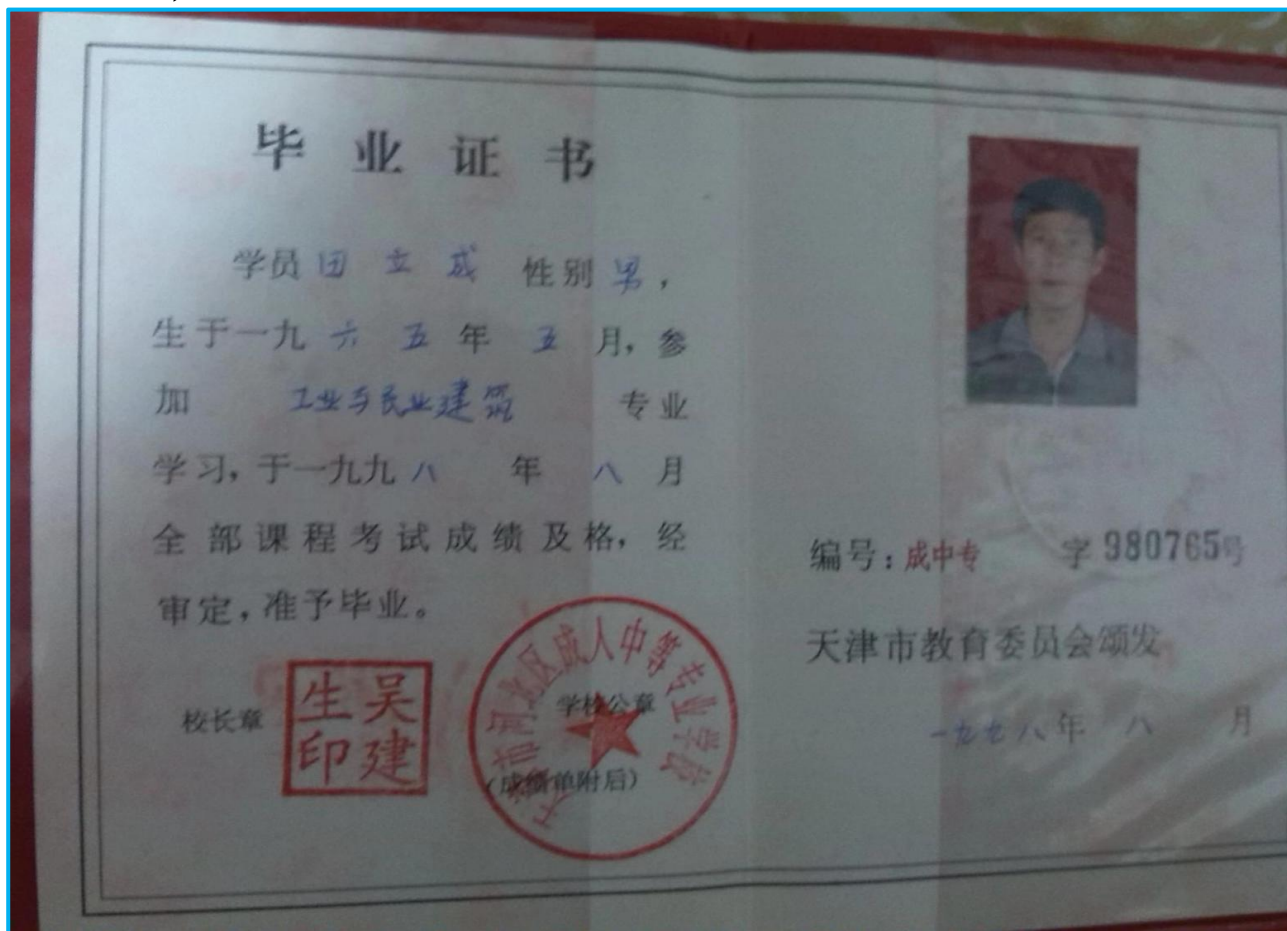 毕业证书
学员 田立成 性别 男，
生于一九六五年五月，参
加 工业与民业建筑 专业
学习，于一九九八年八月
全部课程考试成绩及格，经
审定，准予毕业。
校长章
吴建生印
学校公章
（成绩单附后）
天津市河北区成人中等专业学校
编号：成中专 字980765号
天津市教育委员会颁发
一九九八年八月